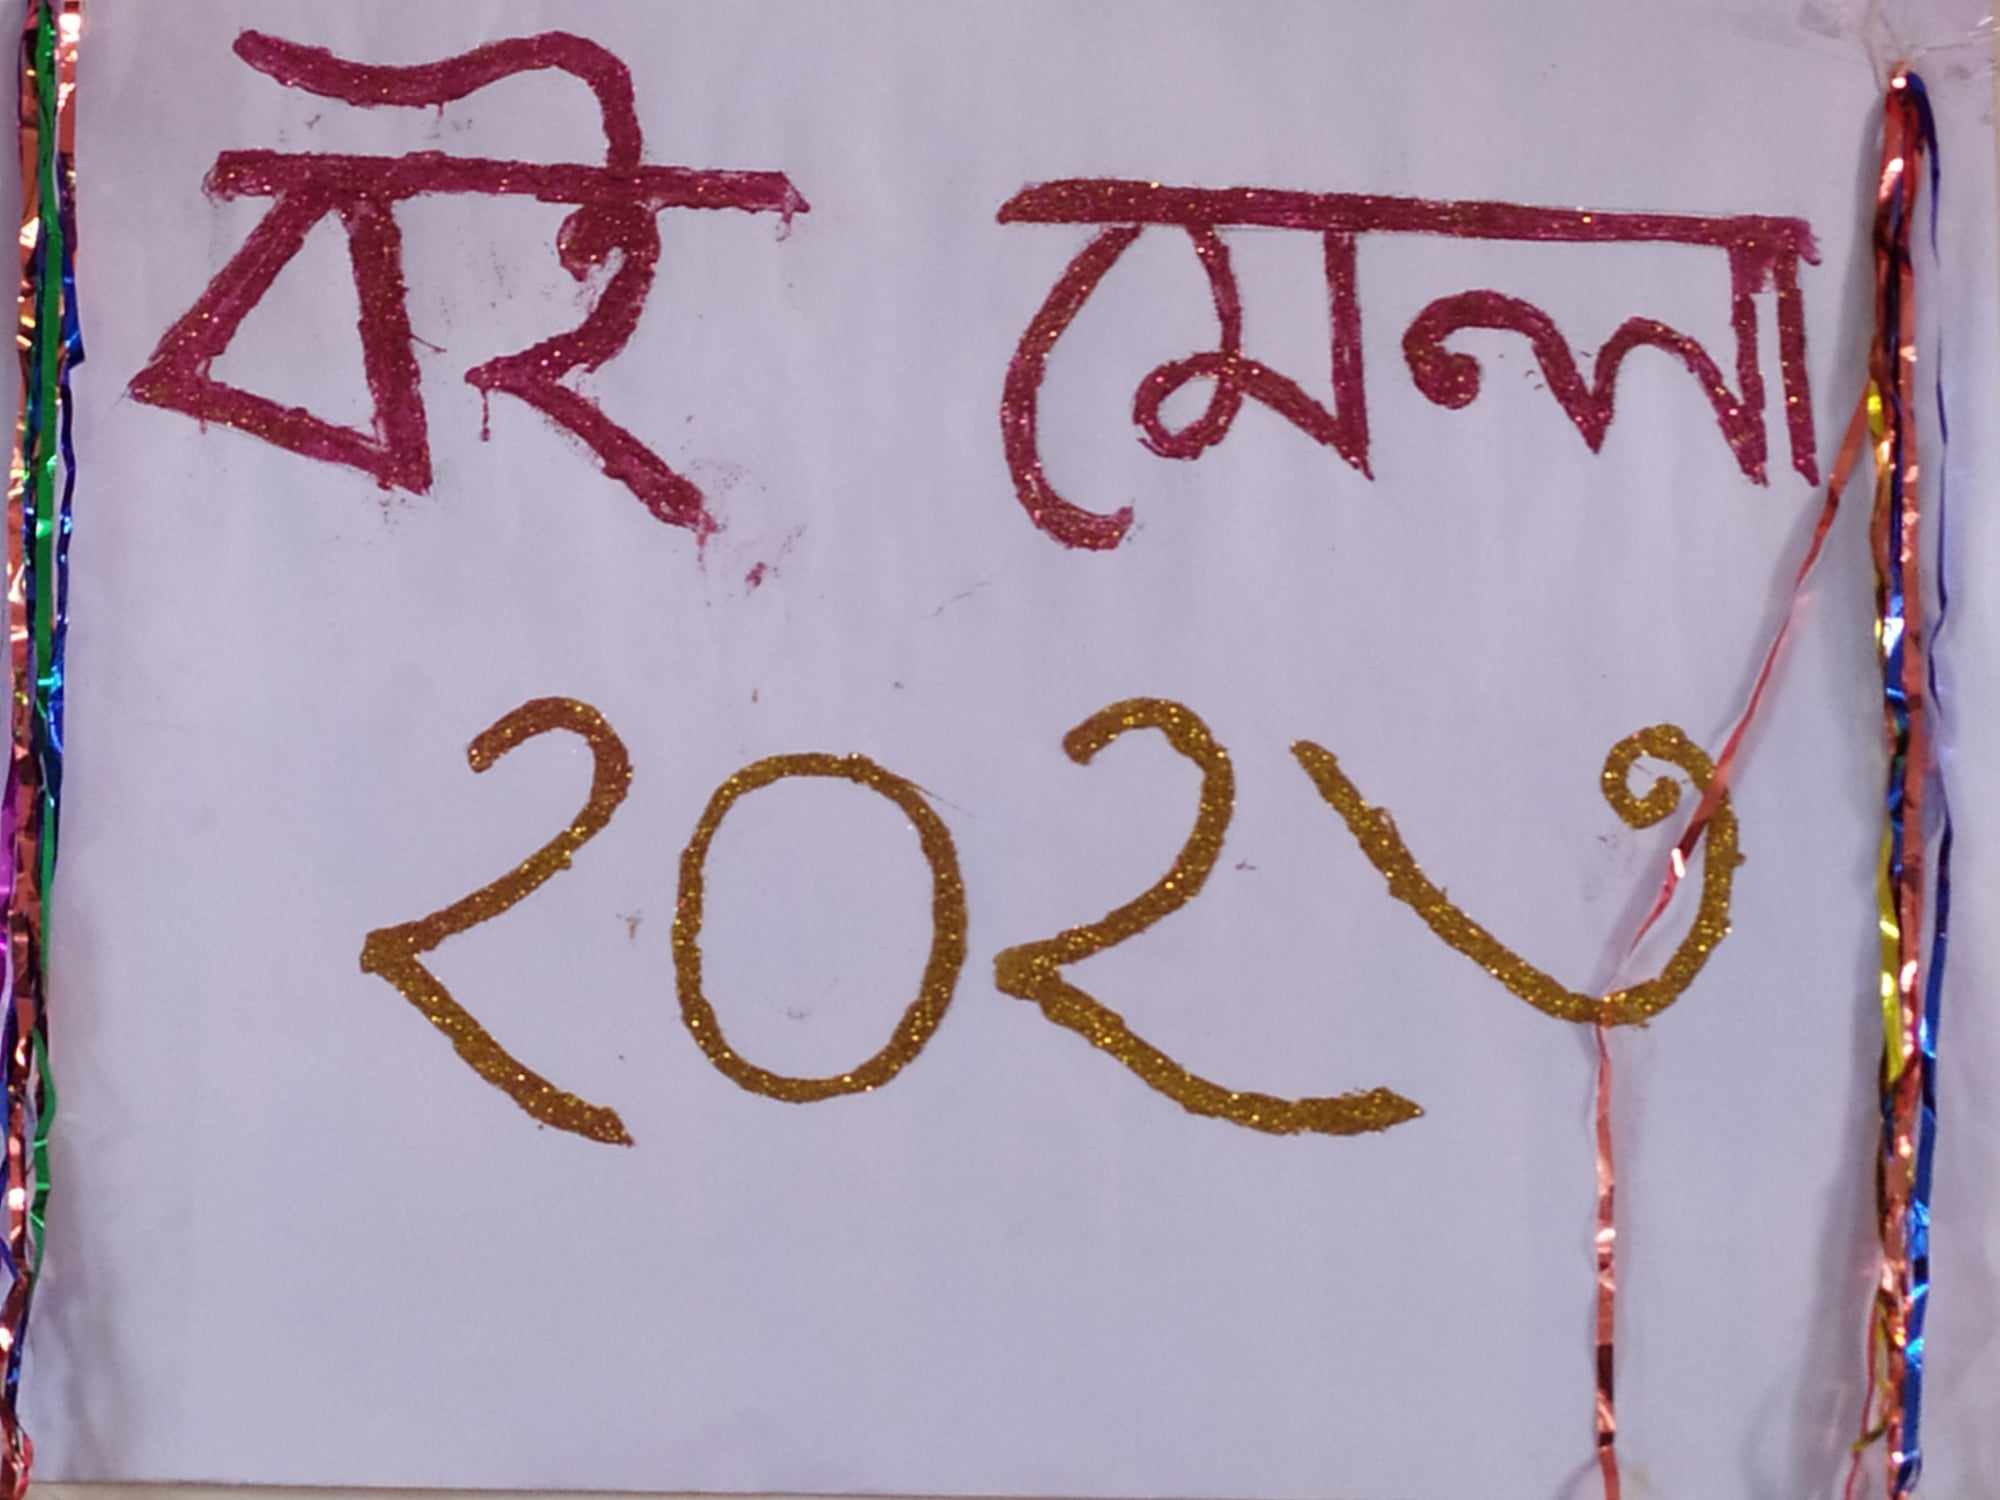 বই মেলা
২০২৩